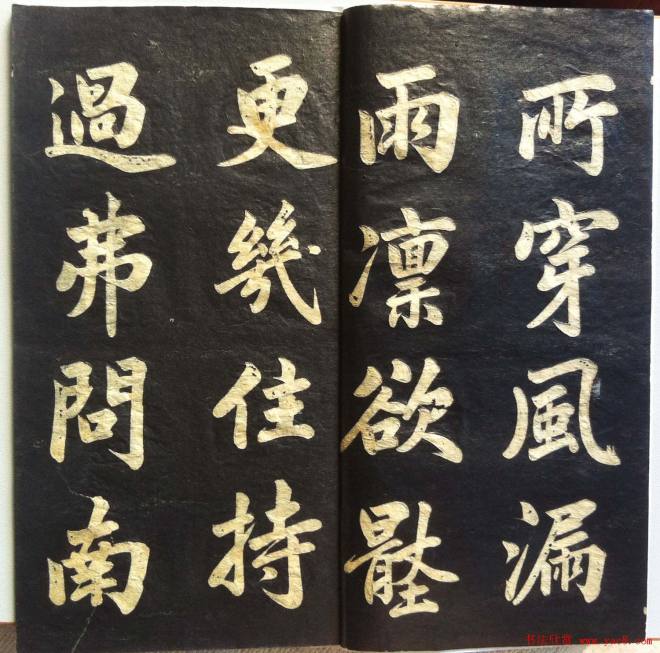 所穿風漏
雨凛欲壓
更幾住持
過弗問南
书法欣赏 www.yac8.com